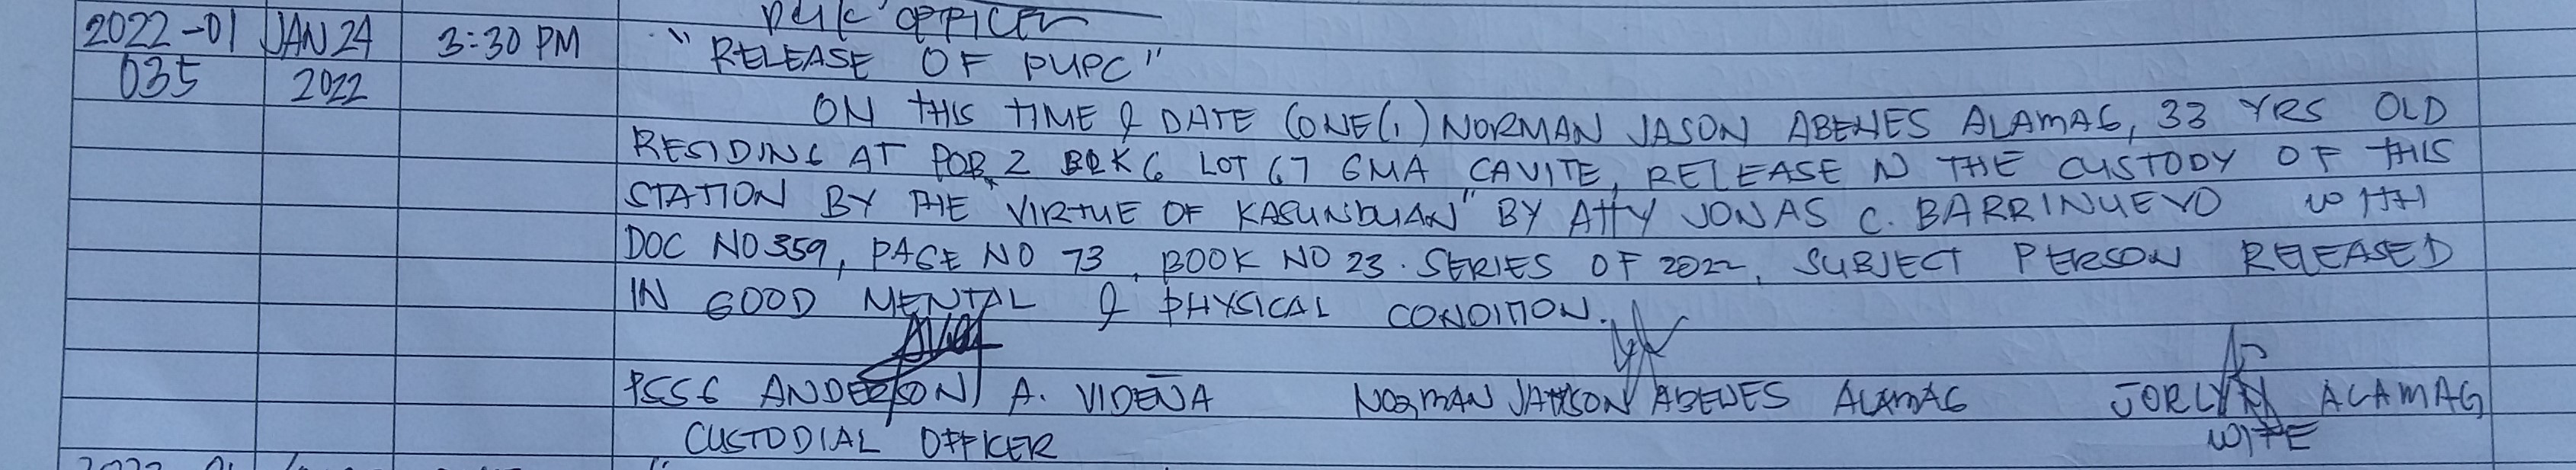 DUTY OFFICER
2022-01 JAN 24 3:30 PM "RELEASE OF PUPC"
035 2022
ON THIS TIME & DATE (ONE(1) NORMAN JASON ABENES ALAMAG, 33 YRS OLD
RESIDING AT POB. 2 BLK 6 LOT 67 GMA CAVITE, RELEASE N THE CUSTODY OF THIS
STATION BY THE "VIRTUE OF KASUNDUAN" BY ATTY JONAS C. BARRINUEVO WITH
DOC NO 359, PAGE NO 73, BOOK NO 23. SERIES OF 2022, SUBJECT PERSON RELEASED
IN GOOD MENTAL & PHYSICAL CONDITION.
PSSG ANDERSON A. VIDEÑA NORMAN JAYSON ABENES ALAMAG JORLYN ALAMAG
CUSTODIAL OFFICER WIFE